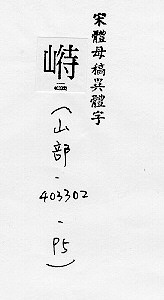 宋體母稿異體字
峙
(山部-403302-P5)